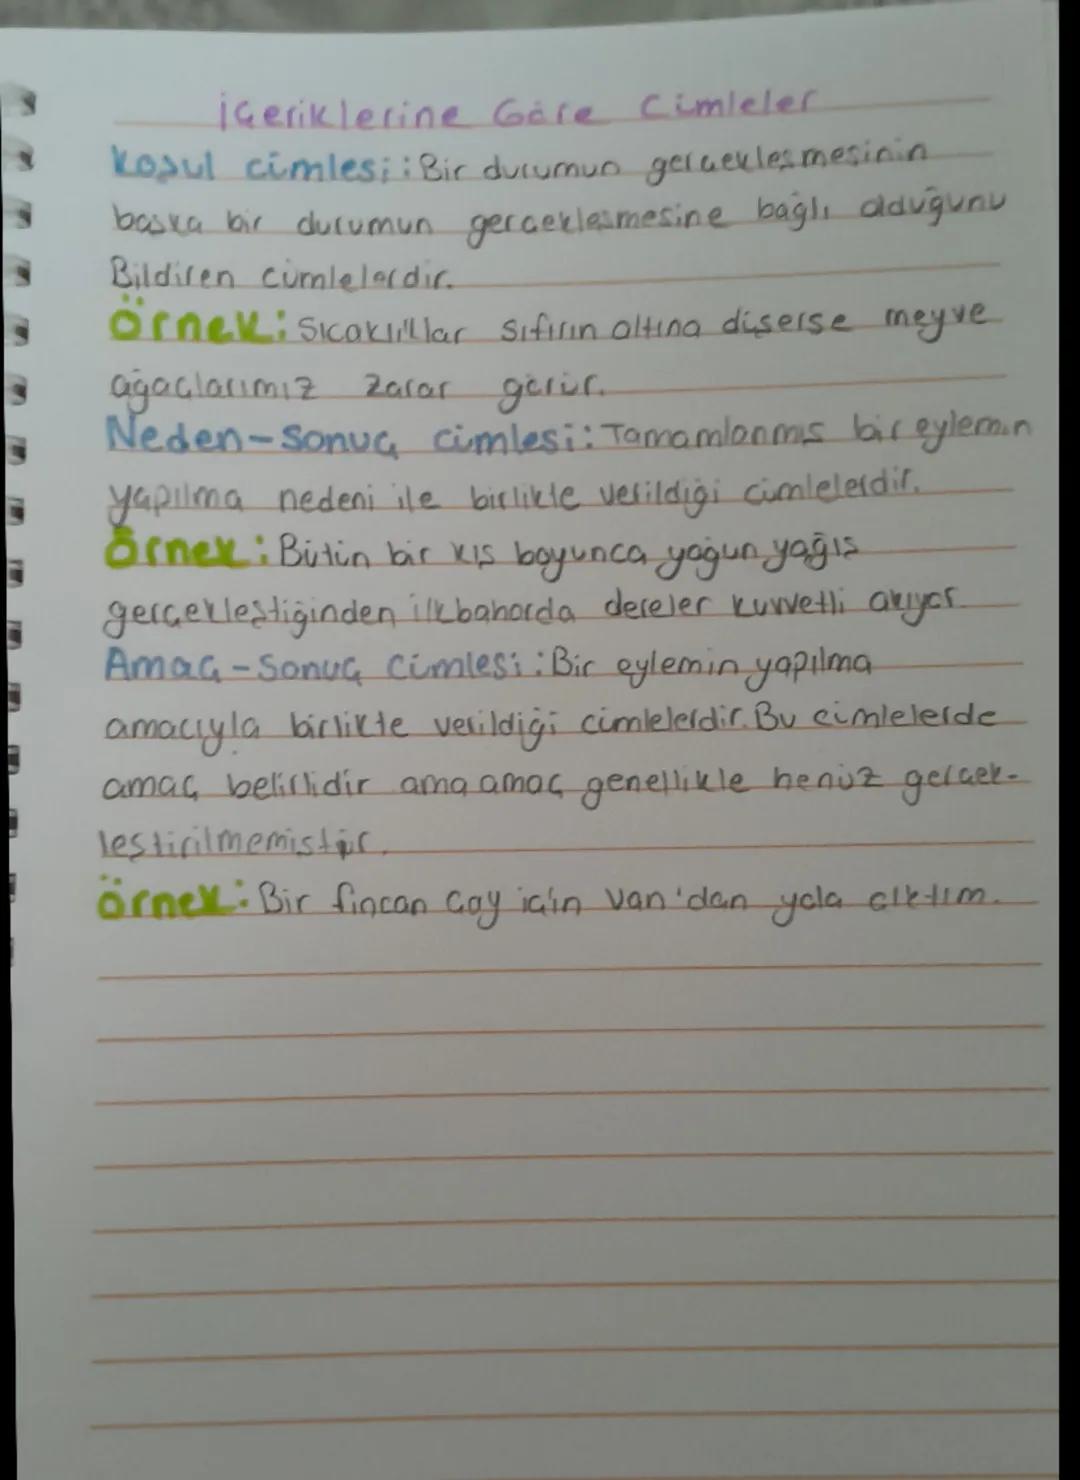 İçeriklerine Göre Cümleler
Koşul cümlesi: Bir durumun gerçekleşmesinin
başka bir durumun gerçekleşmesine bağlı olduğunu
Bildiren cümlelerdir.
Örnek: Sıcaklıklar sıfırın altına düşerse meyve
ağaçlarımız zarar görür.
Neden-Sonuç cümlesi: Tamamlanmış bir eylemin
yapılma nedeni ile birlikte verildiği cümlelerdir.
Örnek: Bütün bir kış boyunca yoğun yağış
gerçekleştiğinden ilkbaharda dereler kuvvetli akıyor.
Amaç-Sonuç Cümlesi: Bir eylemin yapılma
amacıyla birlikte verildiği cümlelerdir. Bu cümlelerde
amaç bellidir ama amaç genellikle henüz gerçek-
leştirilmemiştir.
Örnek: Bir fincan çay için Van'dan yola çıktım.